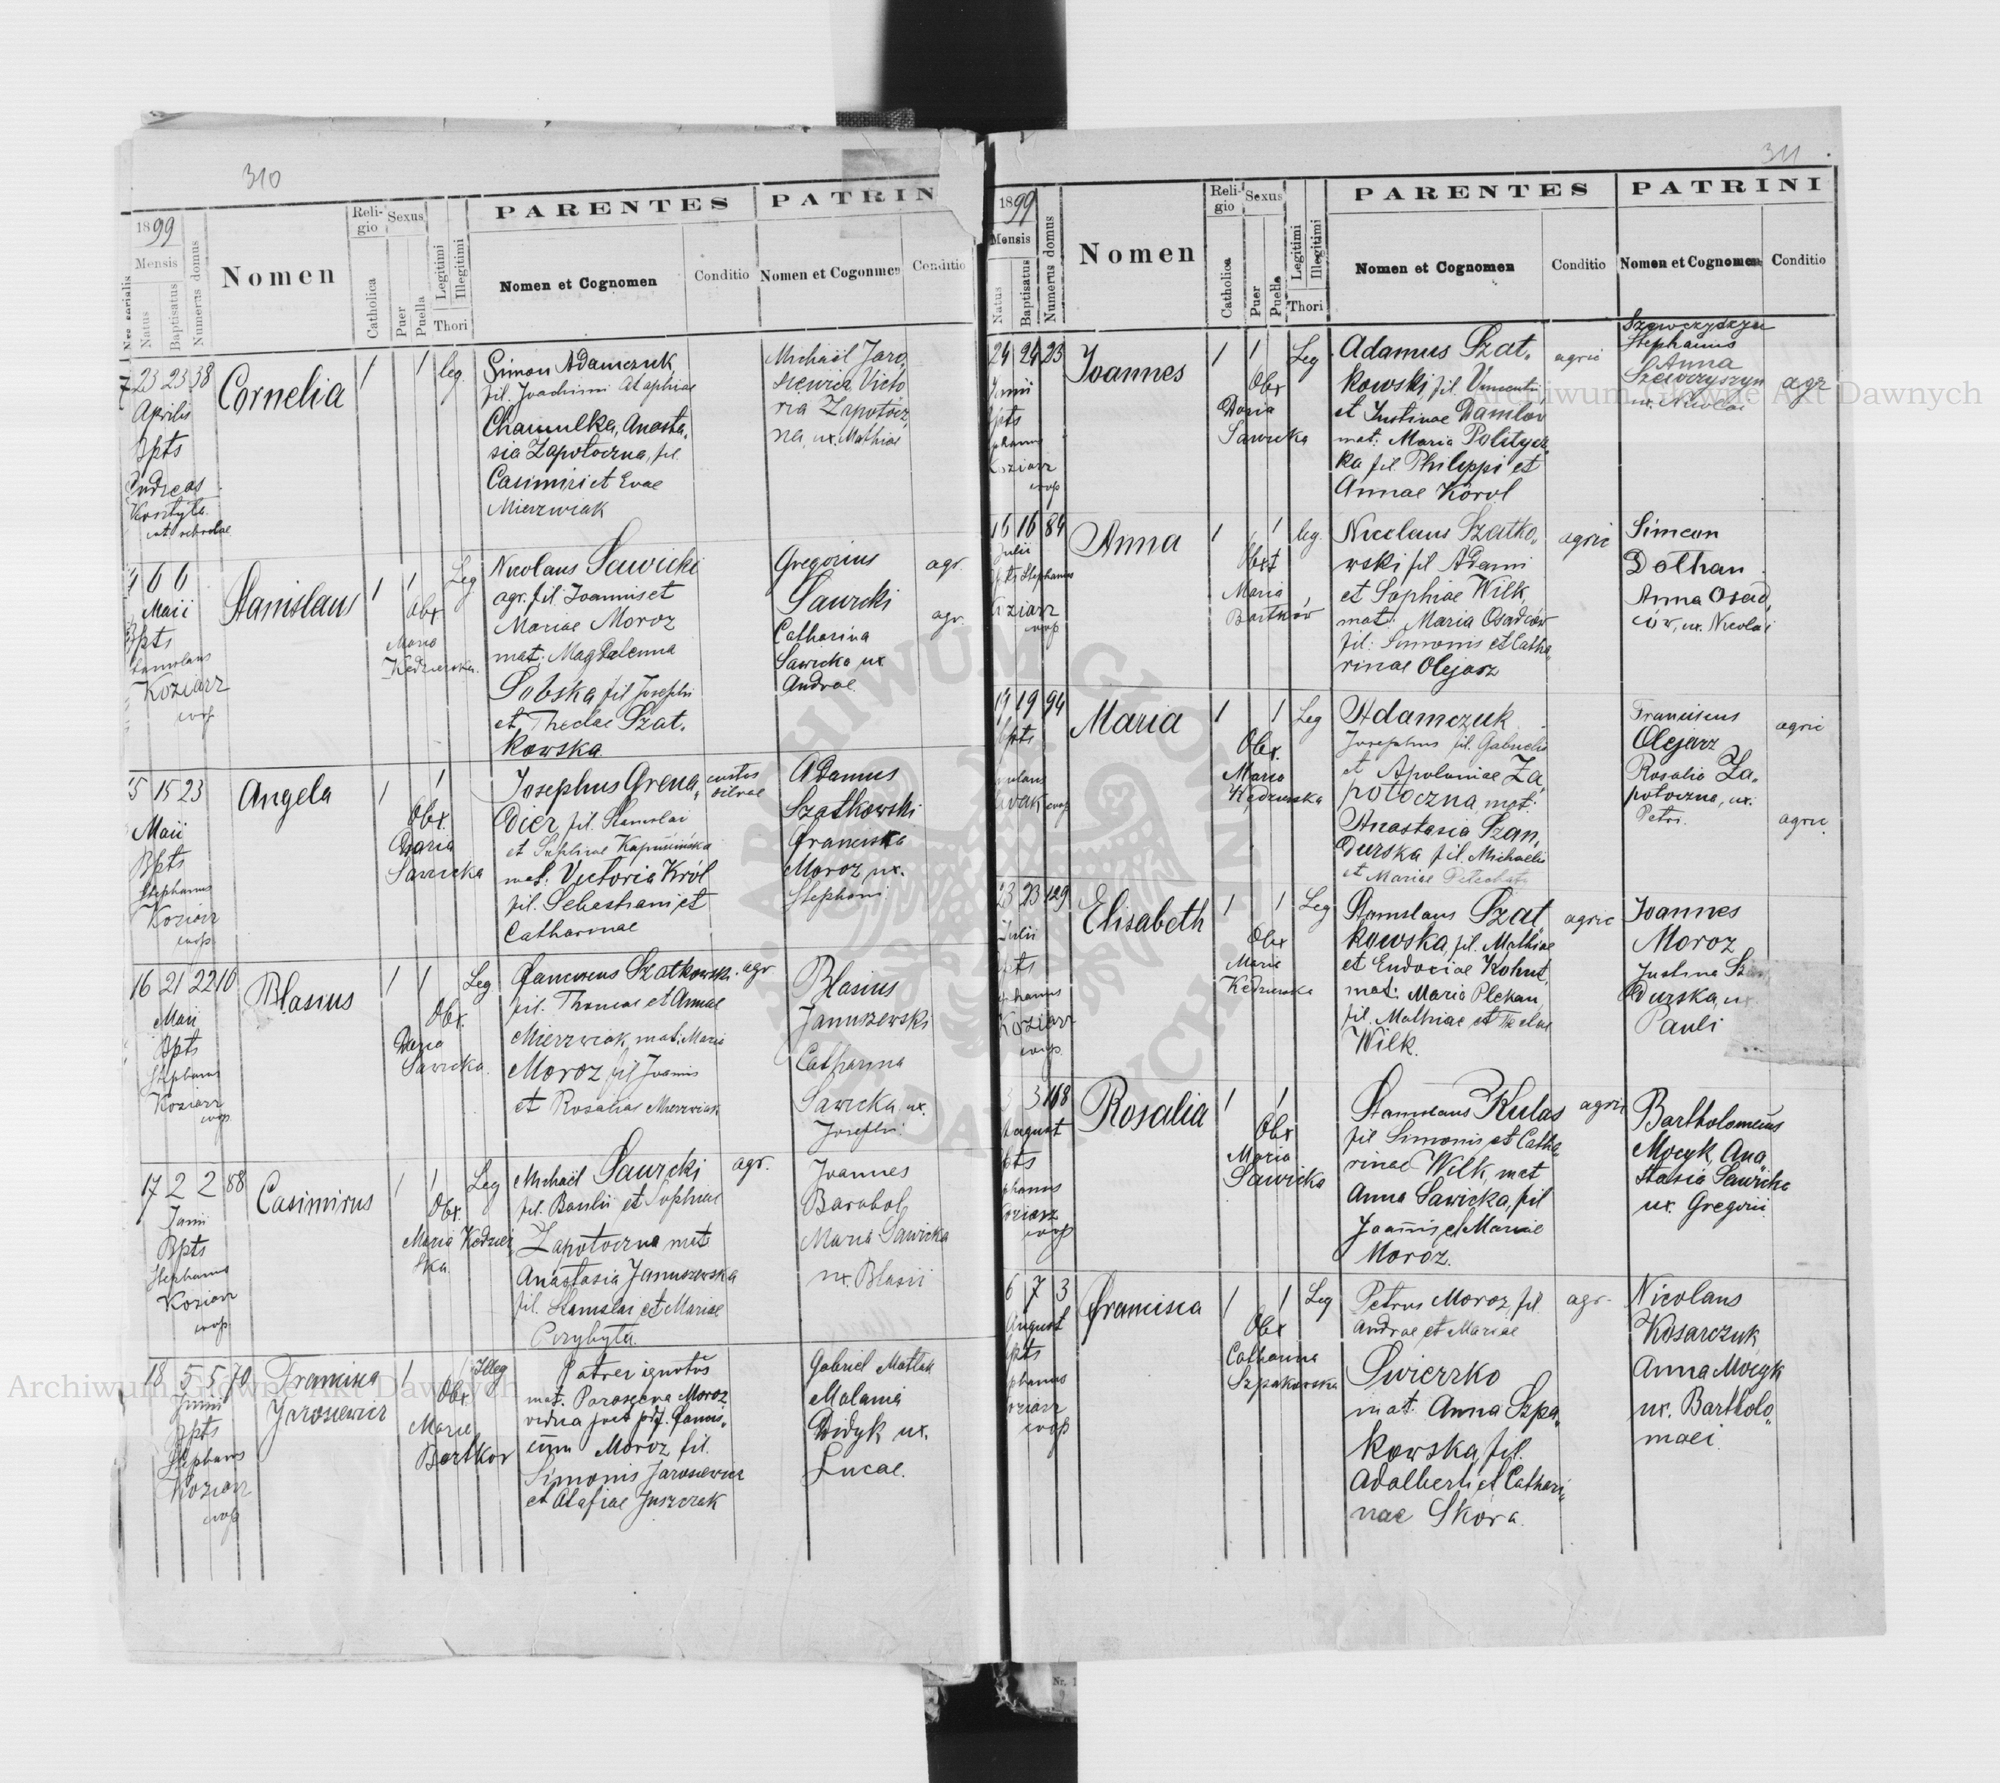 310
1899
Mensis
Natus
Baptisatus
Numerus domus
Nomen
Religio
Catholica
Sexus
Puer
Puella
Legitimi
Illegitimi
Thori
PARENTES
Nomen et Cognomen
Conditio
PATRIN
Nomen et Cogonmen
Conditio
7 23 23 38
Aprilis
Bpts
Andreas
Cornelia
1 1 leg.
Simon Adamczuk
fil. Joachimi Ataphiae
Chamulka, Anasta,
sia Zapotoczna, fil.
Casimiri et Evae
Mierzwiak
Michaël Jaro,
siewicz Victo
ria Zapotocz,
na, ux. Mathiae
4 6 6
Maii
Bpts
Koziarz
coop
Stanislaus
1 1 Leg
Obx
Maria
Kędzierska.
Nicolaus Sawicki
agr. fil. Joannis et
Mariae Moroz
mat: Magdalenna
Sobska fil Josephi
et Theclae Szat,
kowska
Gregorius
Sawicki
Catharina
Sawicka ux
Andrae
agr.
agr.
5 15 23
Maii
Bpts
Stephanus
Koziarz
coop
Angela
1 1
Obx.
Daria
Sawicka
Josephus Grena,
dier fil. Stanislai
et Sophiae Kapuścińska
mat: Victoria Król
fil. Sebastiani et
Catharinae
custos
silvae
Adamus
Szatkowski
Franciska
Moroz ux.
Stephani
16 21 22 10
Maii
Bpts
Stephanus
Koziarz
coop.
Blasius
1 1 Leg
Obx.
Daria
Sawicka.
Franciscus Szatkowski
fil. Thomae et Annae
Mierzwiak, mat: Maria
Moroz fil Joannis
et Rosalias Mierzwiak
agr.
Blasius
Januszewski
Catharina
Sawicka ux.
Josephi
17 2 2 88
Junii
Bpts
Stephanus
Koziarz
coop.
Casimirus
1 1 Leg
Obx.
Maria Kędzier
ska.
Michaël Sawicki
fil. Basilii et Sophiae
Zapotoczna mat
Anastasia Januszewska
fil. Stanislai et Mariae
Perzyhyta
agr.
Joannes
Barabol
Maria Sawicka
ux. Blasii
18 5 5 70
Junii
Bpts
Stephanus
Koziarz
coop
Francisca
Jarosiewicz
1 1 Illeg
Obx.
Maria
Bartkow
Patrer ignotus
mat. Parasceva Moroz
vidua post def. Francis,
cum Moroz fil.
Simonis Jarosiewicz
et Atafiae Juszczak
Gabriel Matlak
Malania
Didyk ux.
Lucae.
311
1899
Mensis
Natus
Baptisatus
Numerus domus
Nomen
Religio
Catholica
Sexus
Puer
Puella
Legitimi
Illegitimi
Thori
PARENTES
Nomen et Cognomen
Conditio
PATRINI
Nomen et Cognomen
Conditio
24 24 23
Junii
Koziarz
coop
Joannes
1 1 Leg
Obx
Daria
Sawicka
Adamus Szat,
kowski, fil Vincentii
et Justinae Danilov
mat: Maria Politycz
ka fil Philippi et
Annae Korol
agric
Szewczyszyn
Stephanus
Anna
Szewczyszyn
ux. Nicolai
agr
16 16 84
Julii
Koziarz
coop
Anna
1 1 leg.
Obst
Maria
Bartków
Nicolaus Szatko,
wski fil Adami
et Sophiae Wilk
mat: Maria Osadców
fil: Simonis et Catha,
rinae Olejarz
agric
Simeon
Dolhan
Anna Osad,
ców, ux. Nicolai
19 19 94
bpts
coop
Maria
1 1 Leg
Obx.
Maria
Kędzierska
Adamczuk
Josephus fil. Gabrielis
et Apoloniae Za,
potoczna mat:
Anastasia Szan,
durska fil. Michaelis
et Mariae
Franciscus
Olejarz
Rosalia Za,
potoczna, ux.
Petri.
agric
agric.
23 23 129
Julii
Koziarz
coop.
Elisabeth
1 1 Leg
Obx
Maria
Kędzierska
Stanislaus Szat
kowska, fil. Mathiae
et Eudociae Kohut
mat: Maria Plekan,
fil. Mathiae et Theclae
Wilk.
agric
Joannes
Moroz
Justina Szan
durska ux.
Pauli
3 3 168
August
Koziarz
coop
Rosalia
1 1
Obx
Maria
Sawicka
Stanislaus Kulas
fil Simonis et Catha
rinae Wilk, mat
Anna Sawicka, fil
Joannis et Mariae
Moroz.
agric
Bartholomeus
Mocyk Ana
stasia Sawicka
ux. Gregorii
6 7 3
August
bpts
coop
Francisca
1 1 Leg
Obx
Catharina
Szpakowska
Petrus Moroz, fil.
Andrae et Mariae
Swierzko
mat: Anna Szpa,
kowska, fil.
Adalberti et Cathari,
nae Skóra.
agr.
Nicolaus
Kosarczuk
Anna Mocyk
ux. Bartholo,
maei.
Archiwum Główne Akt Dawnych
Archiwum Główne Akt Dawnych